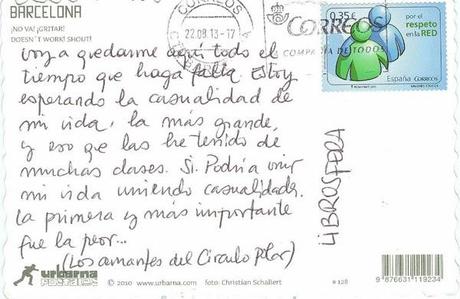 BARCELONA
¡NO VA! ¡GRITAR!
DOESN´T WORK! SHOUT!
CORREOS
22.08.13-17
CORREOS
COMPAÑIA DE TODOS
0,35€
por el
respeto
en la RED
España CORREOS
voy a quedarme aquí todo el
tiempo que haga falta. Estoy
esperando la casualidad de
mi vida, la más grande,
y eso que las he tenido de
muchas clases. Sí. Podría unir
mi vida uniendo casualidades.
La primera y más importante
fue la peor...
(Los amantes del Círculo Polar)
LIBROSFERA
urbarna
POSTALES
© 2010 www.urbarna.com foto: Christian Schallert
# 128
9 876631 119234